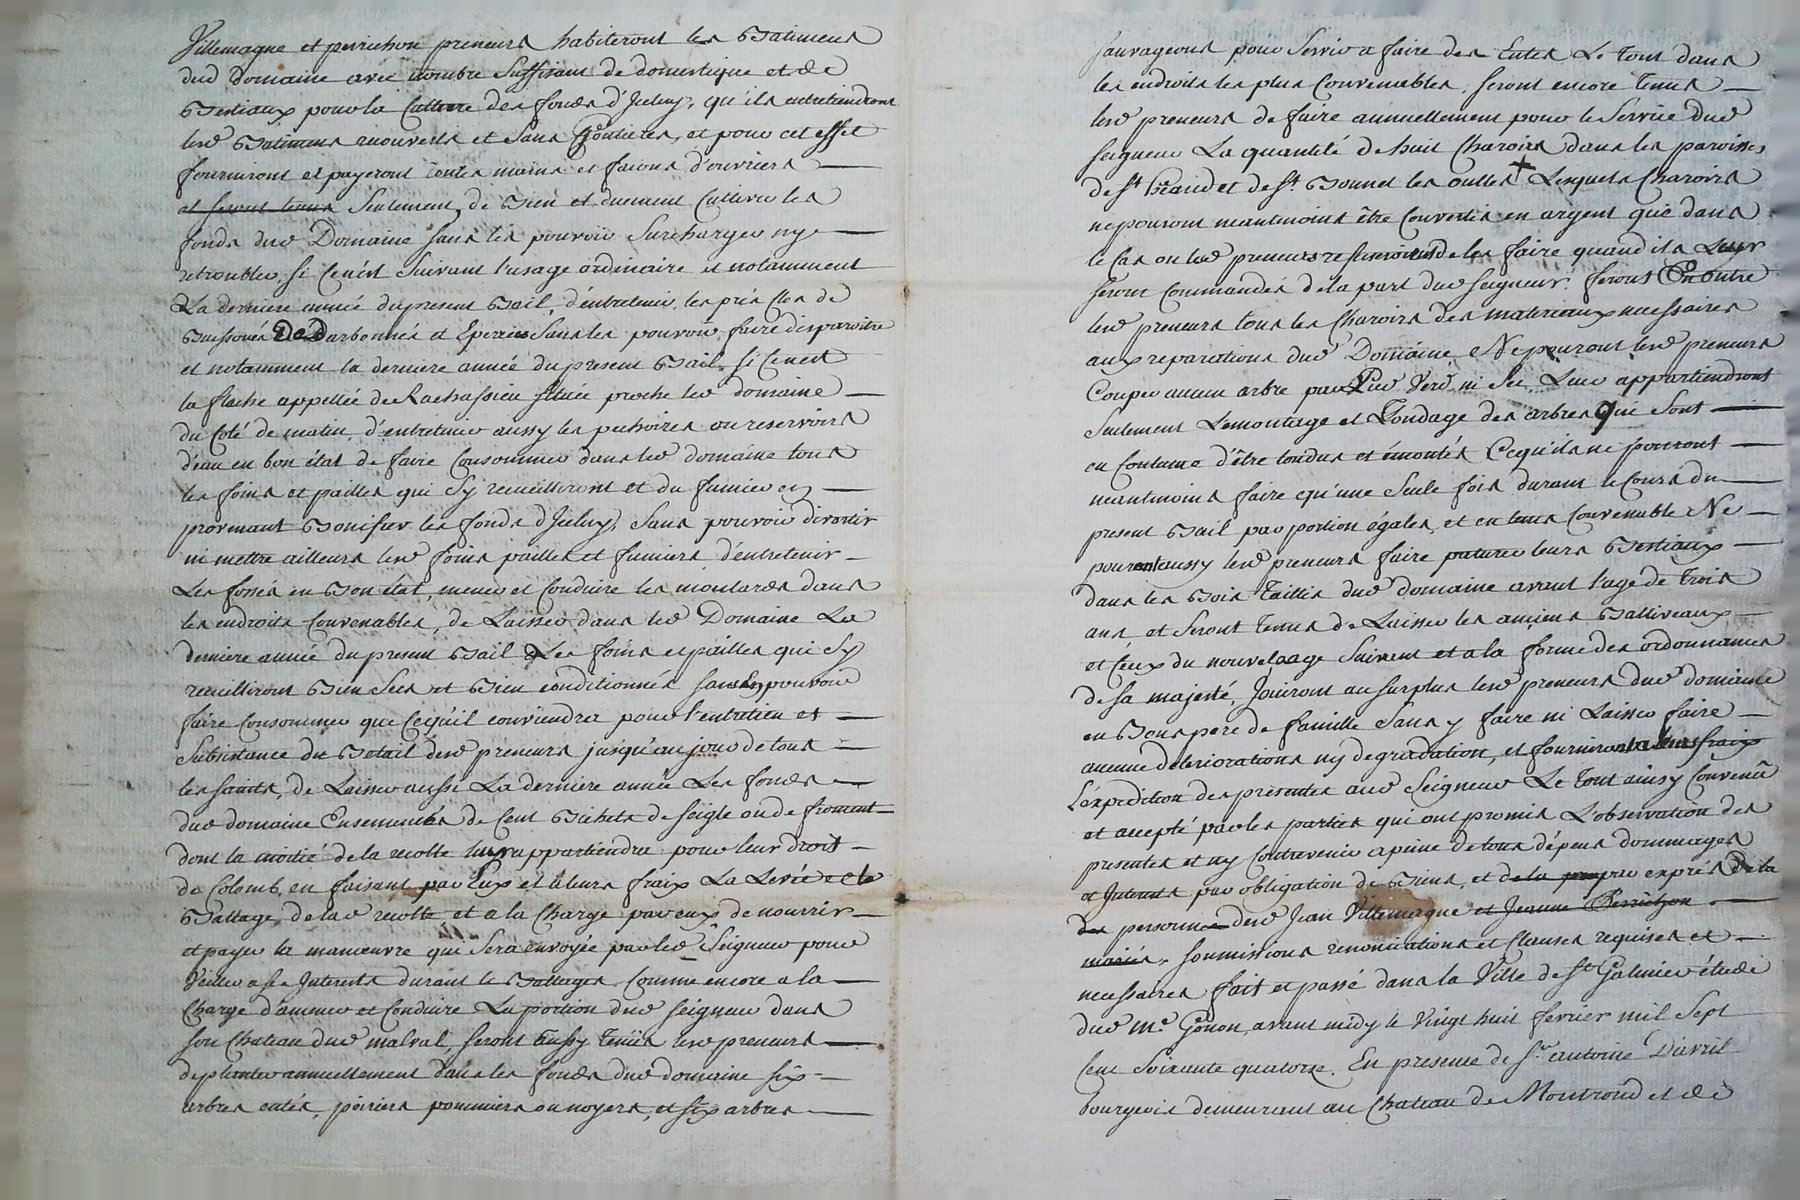 Villemagne et perrichon preneurs habiteront les Batimens
dud Domaine avec nombre suffisant de domestique et de
Bestiaux pour la Culture des fonds d'Iceluy, qu'ils entretiendront
led Batimens recouverts et sans Goutieres, et pour cet effet
fourniront et payeront toutes mains et facons d'ouvriers
et seront tenus Seulement, de Bien et duement Cultiver les
fonds dud Domaine sans les pouvoir Surcharger ny
retroubler, si Ce n'est Suivant l'usage ordinaire et notamment
La derniere année du present Bail, d'entretenir les prés Clos de
Buissons De Darbonnés et Epeaies Sans les pouvoir faire disparoitre
et notamment la derniere année du present Bail, si Ce n'est
la flache appellée de Rachassieu située proche led domaine
du Coté de matin, d'entretenir aussy les pechoires ou reservoirs
d'eau en bon état de faire Consommer dans led domaine tous
les foins et pailles qui Sy recueilliront et du fumier en
provenant Bonifier les fonds d'Iceluy, Sans pouvoir divertir
ni mettre ailleurs lesd foins pailles et fumiers d'entretenir
Les fossés en Bon état, mener et Conduire les moulardes dans
les endroits Convenables, de Laisser dans led Domaine La
derniere année du present Bail Les foins et pailles qui Sy
recuilliront Bien Secs et Bien conditionnés sans En pouvoir
faire Consommer que Cequ'il conviendra pour l'entretien et
Subsistance du Betail desd preneurs jusqu'au jour de tous
les saints, de Laisser aussi La derniere année Les fonds
dud domaine Ensemencés de Cent Bichets de seigle ou de froment
dont la moitié de la recolte leur appartiendra pour leur droit
de Colomb, en faisant par Eux et a leurs fraix La Levée et le
Battage de lad recolte et a la Charge par eux de nourrir
et payer la manœuvre qui Sera envoyée par led Seigneur pour
Veiller a ses Interets durant le Battage. Comme encore a la
Charge d'amener et Conduire La portion dud seigneur dans
son Chateau dud malval, seront aussy Tenus lesd preneurs
de planter annuellement dans les fonds dud domaine six
arbres entés, poiriers pommiers ou noyers, et six arbres
sauvageons pour Servir a faire des Entes Le Tout dans
les endroits les plus Convenables, seront encore Tenus
lesd preneurs de faire annuellement pour le Service dud
seigneur La quantité de huit Charois dans les paroisses
de St Priaud et de St. Bonnet les oulles + Lesquels Charois
ne pouront neantmoins être Convertis en argent que dans
le Cas ou lesd preneurs refuseroient de les faire quand ils Leur
seront Commandés de la part dud seigneur. feront En outre
lesd preneurs tous les Charois des materiaux necessaires
aux reparations dud Domaine. Ne pouront lesd preneurs
Couper aucun arbre par Pied Verd, ni Sec Leur appartiendront
Seulement Lemontage et Tondage des arbres qui Sont
en Coutume d'être tondus et émontés Cequ'ils ne pouront
neantmoins faire qu'une Seule fois durant le Cours du
present Bail par portion égales, et en tems Convenable Ne
pouront aussy lesd preneurs faire paturer leurs Bestiaux
dans les Bois Taillis dud domaine avant l'age de Trois
ans et Seront Tenus de Laisser les anciens Balliveaux
et Ceux du nouvel aage Suivent et a la forme des ordonnances
de sa majesté, Jouiront au surplus lesd preneurs dud domaine
en Bons pere de famille Sans y faire ni Laisser faire
aucune deteriorations ny degradation, et fourniront a leurs fraix
L'expedition des presentes aud Seigneur Le Tout ainsy Convenû
et accepté par les parties qui ont promis L'observation des
presentes et ny Contrevenir a peine de tous dépens dommages
et Interets par obligation de Biens, et de la par expres de la
des personnes desd Jean Villemagne et Jeanne Perrichon
mariés. soumissions renonciations et Clauses requises et
necessaires fait et passé dans la Ville de St Galmier étude
dud Me Gonon, avant midy le Vingt huit fevrier mil Sept
Cent Soixante quatorze. En presence de Sr antoine D'avril
bourgeois demeurant au Chateau de Montrond et de